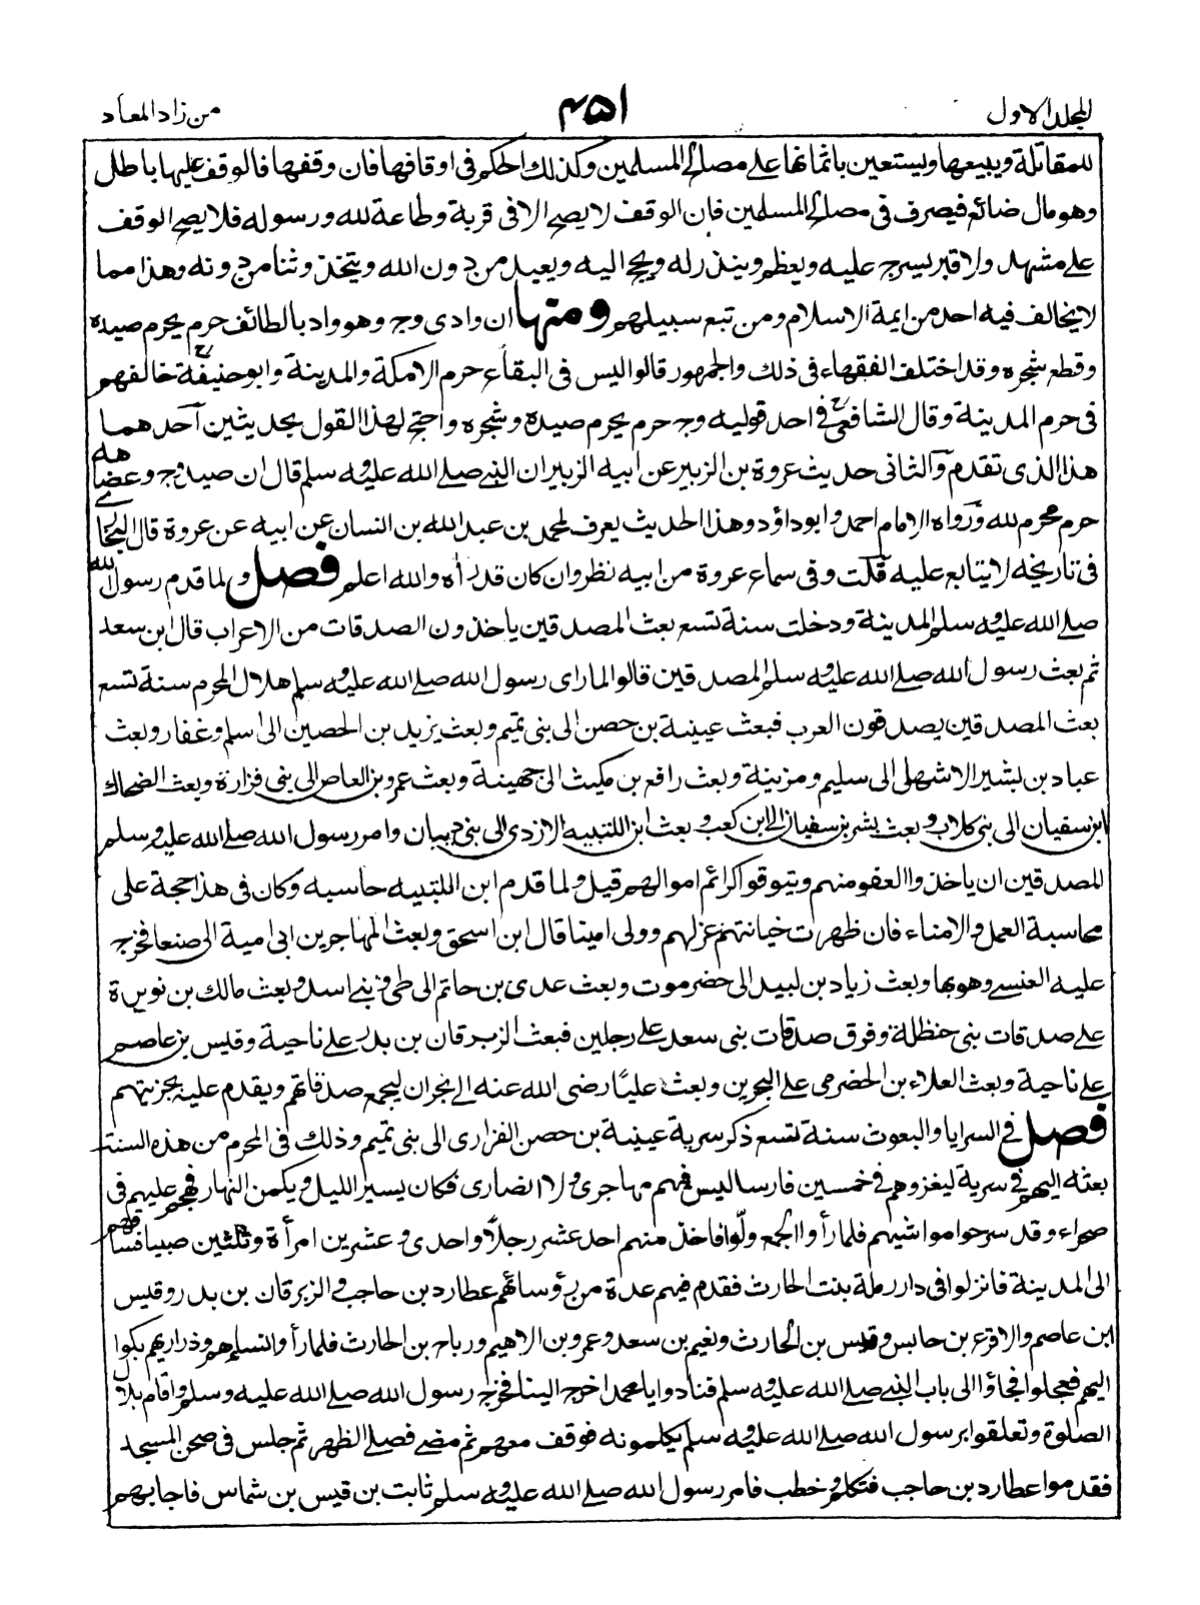 المجلد الاول
۴۵۱
من زاد المعاد
للمقاتلة ويبيعها ويستعين باثمانها على مصالح المسلمين وكذلك الحكم فى اوقافها فان وقفها فالوقف عليها باطل
وهو مال ضائع فيصرف فى مصالح المسلمين فان الوقف لا يصح الا فى قربة وطاعة لله ورسوله فلا يصح الوقف
على مشهد ولا قبر يسرج عليه ويعظم وينذر له ويحج اليه ويعبد من دون الله ويتخذ وثنا من دونه وهذا مما
لا يخالف فيه احد من ايمة الاسلام ومن تبع سبيلهم ومنها ان وادى وج وهو واد بالطائف حرم يحرم صيده
وقطع شجره وقد اختلف الفقهاء فى ذلك والجمهور قالوا ليس فى البقاع حرم الا مكة والمدينة وابو حنيفة رح خالفهم
فى حرم المدينة وقال الشافعى رح فى احد قوليه وج حرم يحرم صيده وشجره واحتج لهذا القول بحديثين احدهما
هذا الذى تقدم والثانى حديث عروة بن الزبير عن ابيه الزبير ان النبى صلى الله عليه وسلم قال ان صيد وج وعضاهه
حرم محرم لله ورواه الامام احمد وابو داؤد وهذا الحديث يعرف لمحمد بن عبد الله بن انسان عن ابيه عن عروة قال البخارى
فى تاريخه لا يتابع عليه قلت وفى سماع عروة من ابيه نظر وان كان قد رأه والله اعلم فصل ولما قدم رسول الله
صلى الله عليه وسلم المدينة ودخلت سنة تسع بعث المصدقين ياخذون الصدقات من الاعراب قال ابن سعد
ثم بعث رسول الله صلى الله عليه وسلم المصدقين قالوا لما راى رسول الله صلى الله عليه وسلم هلال المحرم سنة تسع
بعث المصدقين يصدقون العرب فبعث عيينة بن حصن الى بنى تميم وبعث يزيد بن الحصين الى اسلم وغفار وبعث
عباد بن بشير الاشهلى الى سليم ومزينة وبعث رافع بن مكيث الى جهينة وبعث عمرو بن العاص الى بنى فزارة وبعث الضحاك
ابن سفيان الى بنى كلاب وبعث بشر بن سفيان الى ابن كعب وبعث ابن اللتبيه الازدى الى بنى ذبيان وامر رسول الله صلى الله عليه وسلم
المصدقين ان ياخذوا العفو منهم ويتوقوا كرائم اموالهم قيل ولما قدم ابن اللتبيه حاسبه وكان فى هذا حجة على
محاسبة العمل والامناء فان ظهرت خيانتهم عزلهم وولى امينا قال ابن اسحق وبعث المهاجر بن ابى امية الى صنعا فخرج
عليه العنسى وهو بها وبعث زياد بن لبيد الى حضرموت وبعث عدى بن حاتم الى طى وبنى اسد وبعث مالك بن نويرة
على صدقات بنى حنظلة وفرق صدقات بنى سعد على رجلين فبعث الزبرقان بن بدر على ناحية وقيس بن عاصم
على ناحية وبعث العلاء بن الحضرمى على البحرين وبعث عليا رضى الله عنه الى نجران ليجمع صدقاتهم ويقدم عليه بجزيتهم
فصل فى السرايا والبعوث سنة تسع ذكر سرية عيينة بن حصن الفزارى الى بنى تميم وذلك فى المحرم من هذه السنة
بعثه اليهم فى سرية ليغزوهم فى خمسين فارسا ليس فيهم مهاجرى ولا انصارى فكان يسير الليل ويكمن النهار فهجم عليهم فى
صحراء وقد سرحوا مواشيهم فلما رأوا الجمع ولوا فاخذ منهم احد عشر رجلا واحدى وعشرين امرأة وثلثين صبيا فساقهم
الى المدينة فانزلوا فى دار رملة بنت الحارث فقدم فيهم عدة من رؤسائهم عطارد بن حاجب والزبرقان بن بدر وقيس
ابن عاصم والاقرع بن حابس وقيس بن الحارث ونعيم بن سعد وعمرو بن الاهيم ورباح بن الحارث فلما رأوا نساءهم وذراريهم بكوا
اليهم فعجلوا فجاؤا الى باب النبى صلى الله عليه وسلم فنادوا يا محمد اخرج الينا فخرج رسول الله صلى الله عليه وسلم واقام بلال
الصلوة وتعلقوا برسول الله صلى الله عليه وسلم يكلمونه فوقف معهم ثم مضى فصلى الظهر ثم جلس فى صحن المسجد
فقدموا عطارد بن حاجب فتكلم وخطب فامر رسول الله صلى الله عليه وسلم ثابت بن قيس بن شماس فاجابهم